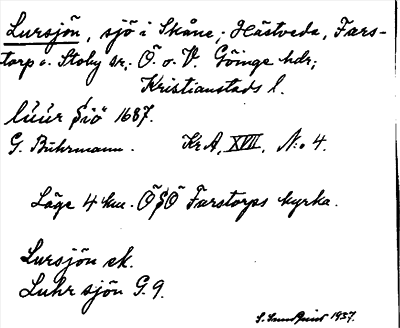 Lursjön, sjö i Skåne; Hästveda, Fars-
torp o. Stoby sn; Ö. o. V. Göinge hdr;
Kristianstads l.
lúúr siö 1687.
G. Buhrmann. KrA, XVII, N:o 4.
Läge 4 km. ÖSÖ Farstorps kyrka.
Lursjön ek.
Luhr sjön G. 9.
S. Sundquist 1937.